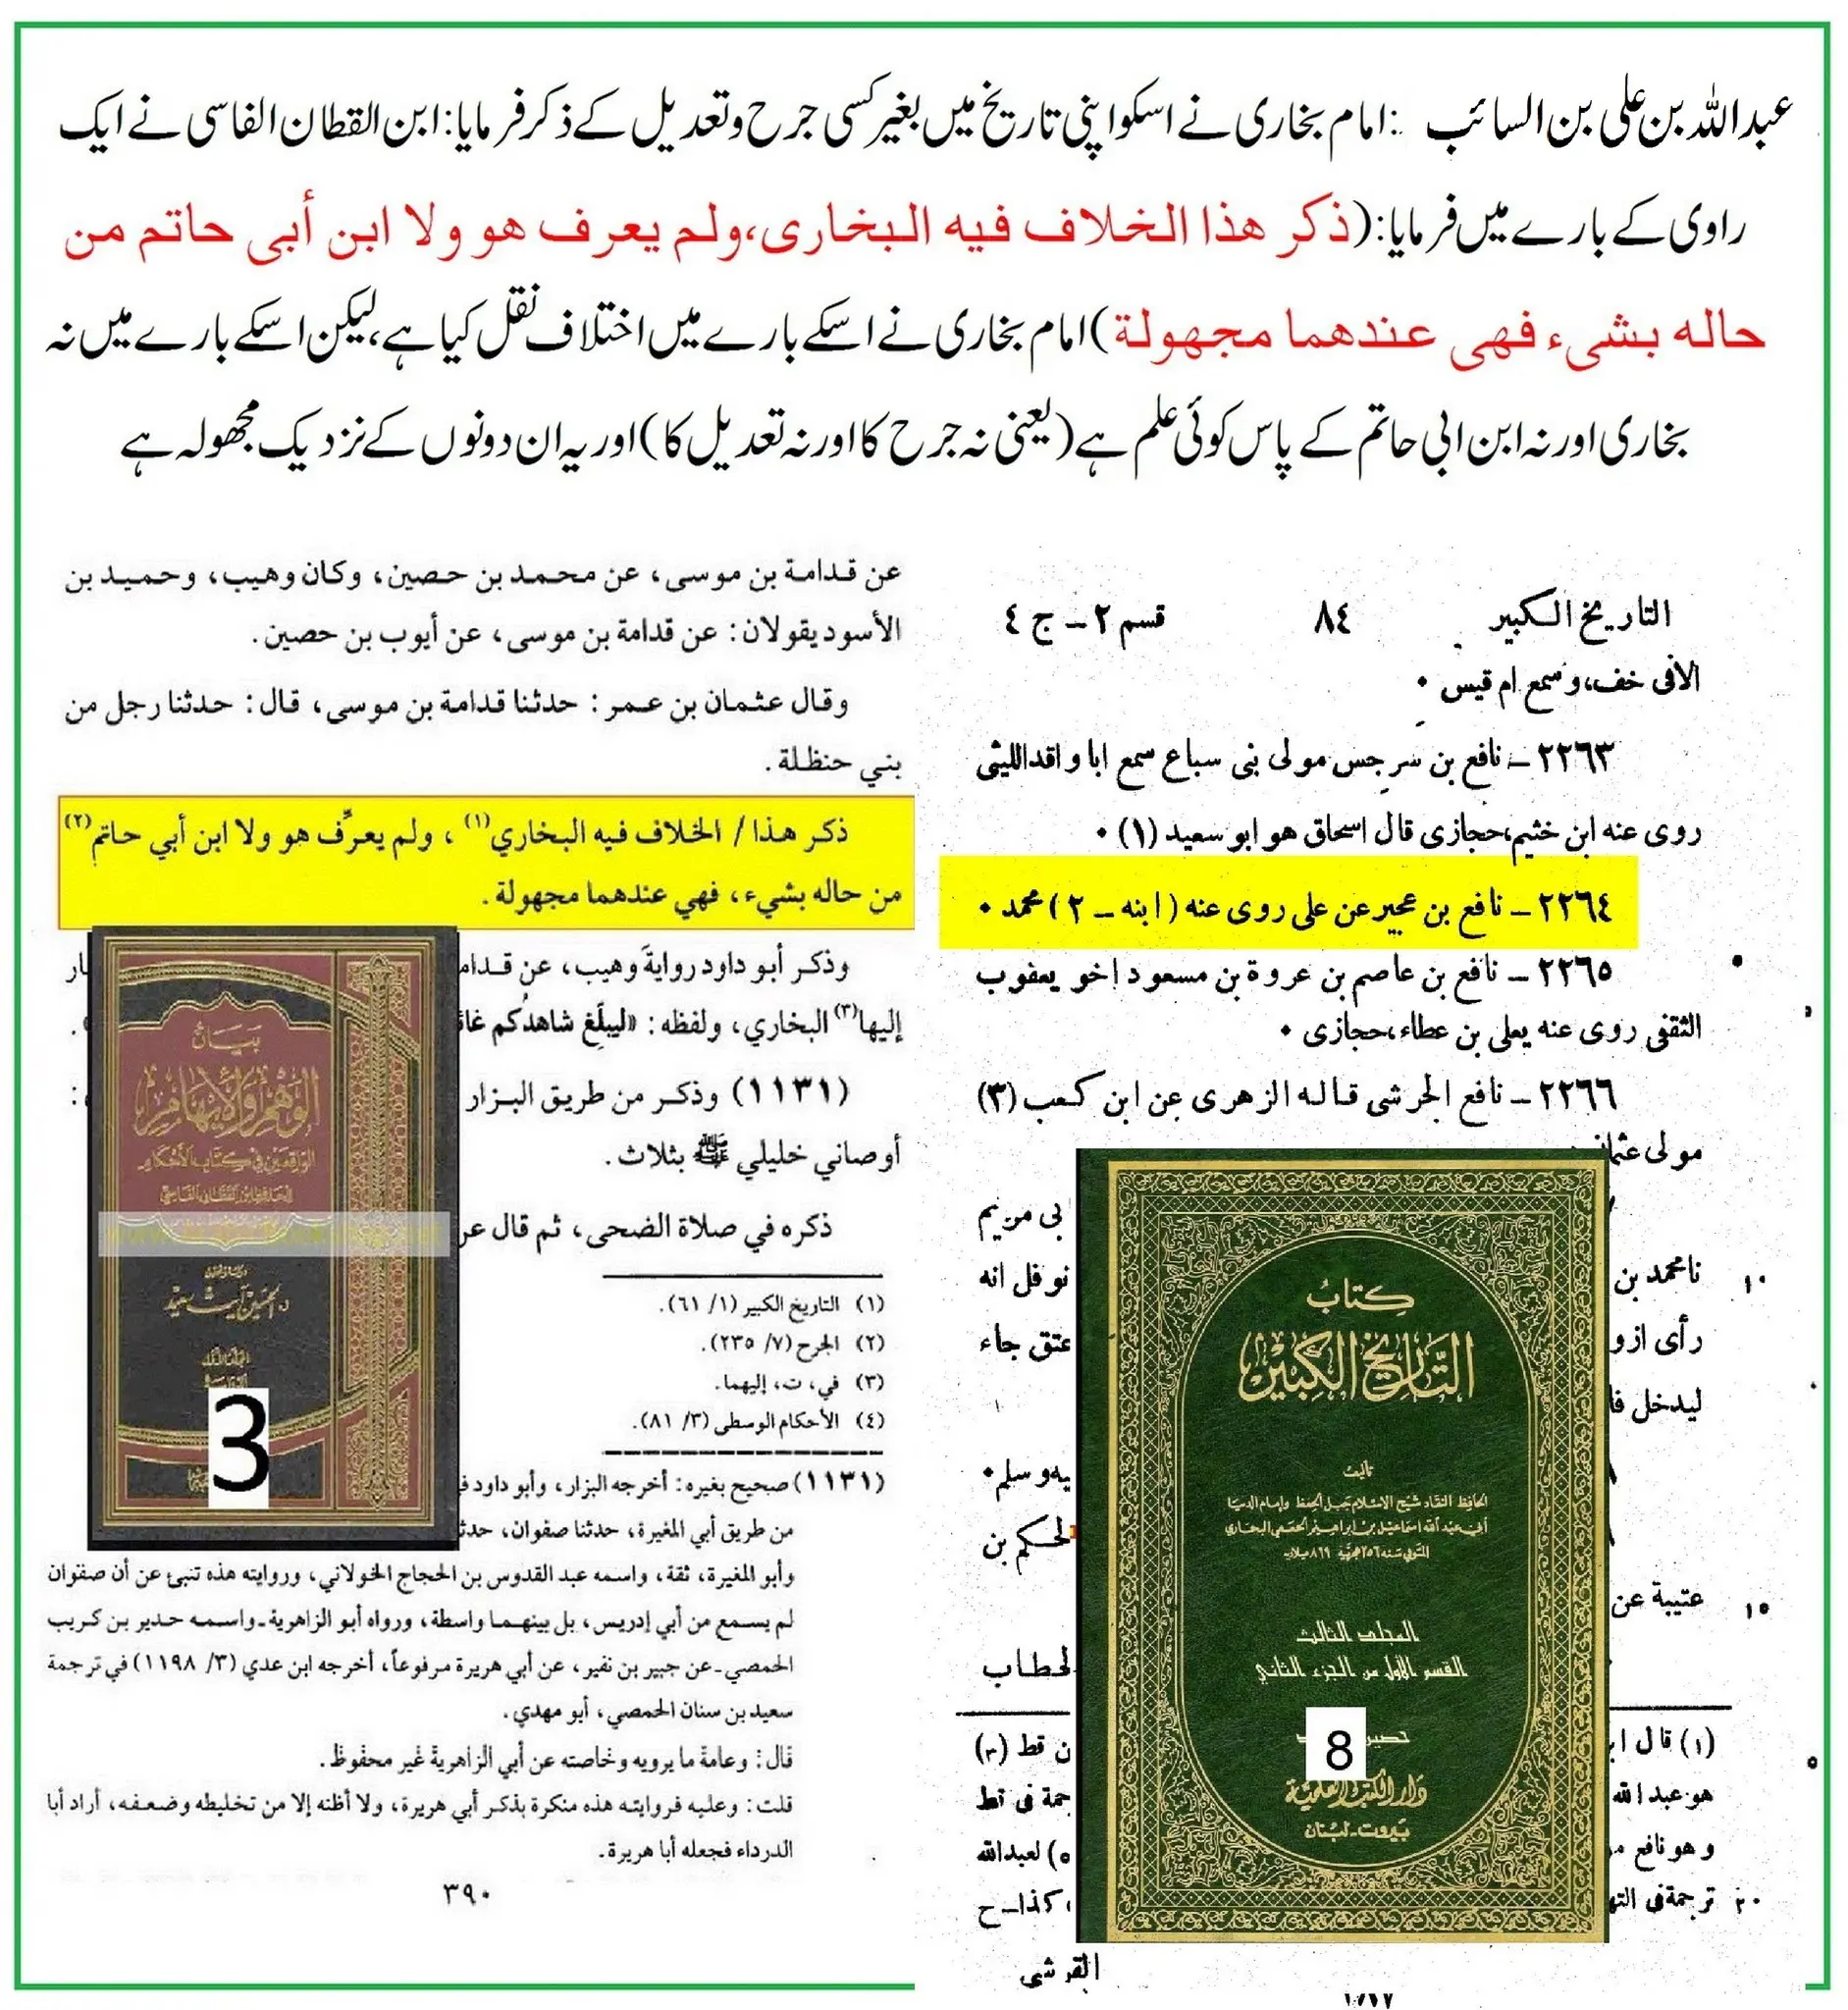 عبداللہ بن علی بن السائب :امام بخاری نے اسکو اپنی تاریخ میں بغیر کسی جرح وتعدیل کے ذکر فرمایا: ابن القطان الفاسی نے ایک
راوی کے بارے میں فرمایا:(ذکر هذا الخلاف فیه البخاری،ولم یعرف هو ولا ابن أبی حاتم من
حاله بشیء فهی عندهما مجهولة) امام بخاری نے اسکے بارے میں اختلاف نقل کیا ہے،لیکن اسکے بارے میں نہ
بخاری اور نہ ابن ابی حاتم کے پاس کوئی علم ہے (یعنی نہ جرح کا اور نہ تعدیل کا) اور یہ ان دونوں کے نزدیک مجھولہ ہے
التاريخ الكبير ٨٤ قسم ٢ - ج ٤
الافى خف،وسمع ام قيس ٠
٢٢٦٣ - نافع بن سرجس مولى بنى سباع سمع ابا واقدالليثى
روى عنه ابن خثيم،حجازى قال اسحاق هو ابو سعيد (١) ٠
٢٢٦٤ - نافع بن عجير عن على روى عنه (ابنه - ٢) محمد ٠
٢٢٦٥ - نافع بن عاصم بن عروة بن مسعود اخو يعقوب
الثقفى روى عنه يعلى بن عطاء،حجازى ٠
٢٢٦٦ - نافع الجرشى قاله الزهرى عن ابن كعب (٣)
مولى
بى مريم
نامحمد بن
نوفل انه
١٠
رأى
عتق جاء
ليدخل
يه وسلم٠
لحكم بن
عتيبة عن
١٥
لخطاب
(١) قال
ن قط (٣)
هو عبد الله
جمة فى قط
و هو نافع
(٥) لعبدالله
ترجمة فى
، كذا - ح
٢٠
القرشى
كتاب
التاريخ الكبير
تأليف
الحافظ النقاد شيخ الاسلام جبل الحفظ وإمام الدنيا
أبي عبد الله اسماعيل بن ابراهيم الجعفي البخاري
المتوفى سنة ٢٥٦ هجرية ٨٦٩ ميلادية
المجلد الثالث
القسم الأول من الجزء الثاني
8
دار الكتب العلمية
بيروت - لبنان
عن قدامة بن موسى، عن محمد بن حصين، وكان وهيب، وحميد بن
الأسود يقولان: عن قدامة بن موسى، عن أيوب بن حصين.
وقال عثمان بن عمر: حدثنا قدامة بن موسى، قال: حدثنا رجل من
بني حنظلة.
ذكر هذا / الخلاف فيه البخاري(١)، ولم يعرِّف هو ولا ابن أبي حاتم(٢)
من حاله بشيء، فهي عندهما مجهولة.
وذكر أبو داود رواية وهيب، عن
إليها(٣) البخاري، ولفظه: «ليبلّغ شاهدُكم
(١١٣١) وذكر من طريق البزار
أوصاني خليلي ﷺ بثلاث.
ذكره في صلاة الضحى، ثم قال
(١) التاريخ الكبير (١/ ٦١).
(٢) الجرح (٧/ ٢٣٥).
(٣) في، ت، إليهما.
(٤) الأحكام الوسطى (٣/ ٨١).
(١١٣١) صحيح بغيره: أخرجه البزار، وأبو داود
من طريق أبي المغيرة، حدثنا صفوان،
وأبو المغيرة، ثقة، واسمه عبد القدوس بن الحجاج الخولاني، وروايته هذه تنبئ عن أن صفوان
لم يسمع من أبي إدريس، بل بينهما واسطة، ورواه أبو الزاهرية - واسمه حدير بن كريب
الحمصي - عن جبير بن نفير، عن أبي هريرة مرفوعاً، أخرجه ابن عدي (٣/ ١١٩٨) في ترجمة
سعيد بن سنان الحمصي، أبو مهدي.
قال: وعامة ما يرويه وخاصته عن أبي الزاهرية غير محفوظ.
قلت: وعليه فروايته هذه منكرة بذكر أبي هريرة، ولا أظنه إلا من تخليطه وضعفه، أراد أبا
الدرداء فجعله أبا هريرة.
٣٩٠
بيان
الوهم والإيهام
الواقعين في كتاب الأحكام
للحافظ ابن القطان الفاسي
د. الحسين آيت سعيد
3